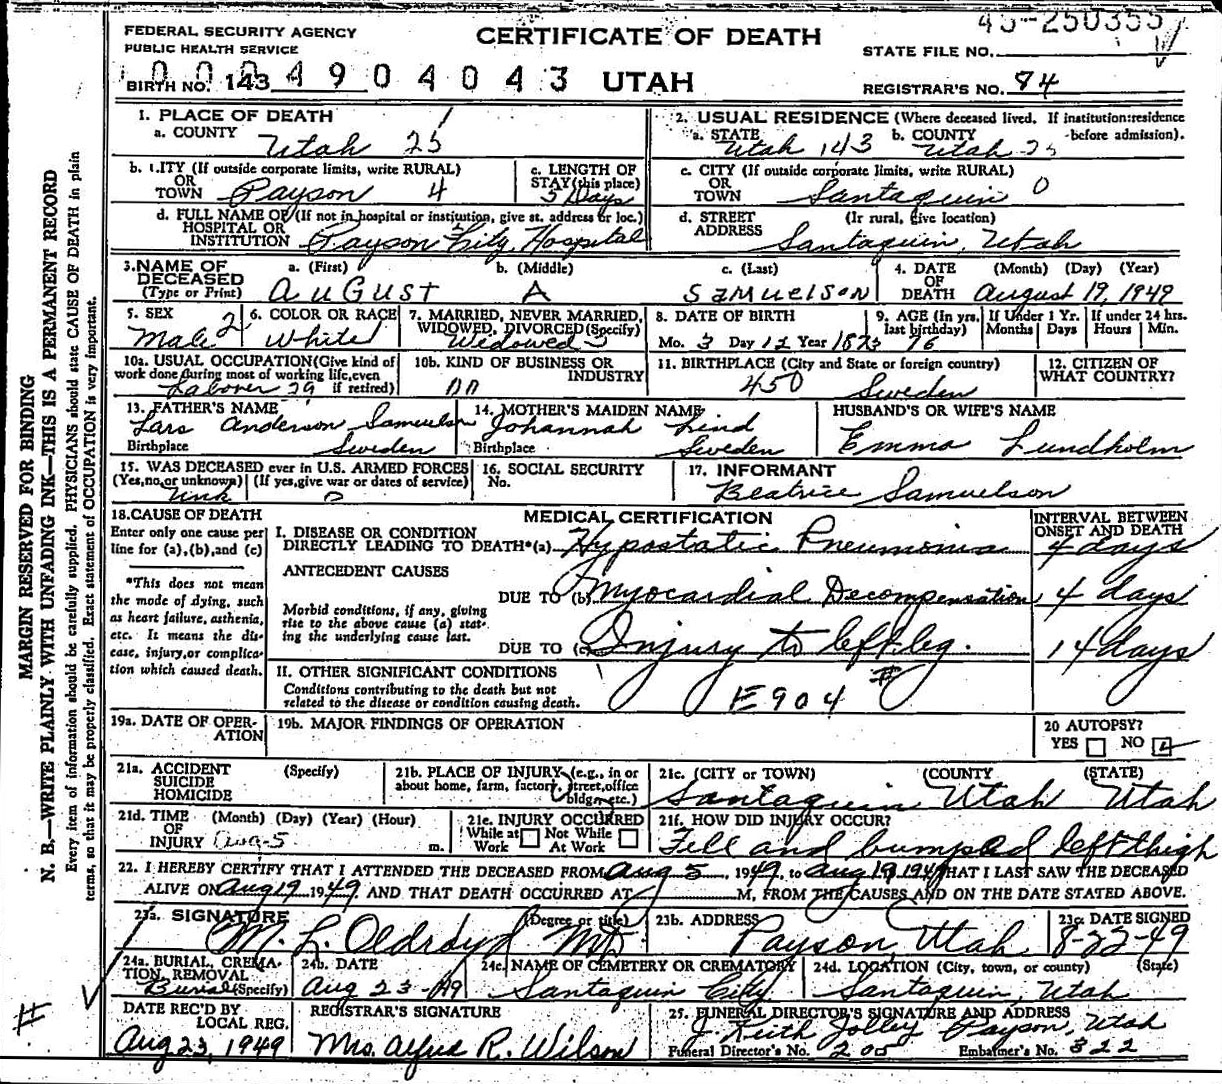 FEDERAL SECURITY AGENCY
PUBLIC HEALTH SERVICE
CERTIFICATE OF DEATH
45-250355
STATE FILE NO.
0 0 0 4 9 0 4 0 4 3
BIRTH NO. 143
UTAH
REGISTRAR'S NO. 84
1. PLACE OF DEATH
a. COUNTY Utah 25
2. USUAL RESIDENCE (Where deceased lived. If institution:residence before admission).
a. STATE Utah 143 b. COUNTY Utah 25
b. CITY (If outside corporate limits, write RURAL) OR TOWN Payson 4
c. LENGTH OF STAY (this place) 5 Days
c. CITY (If outside corporate limits, write RURAL) OR TOWN Santaquin 0
d. FULL NAME OF (If not in hospital or institution, give st. address or loc.) HOSPITAL OR INSTITUTION Payson City Hospital
d. STREET ADDRESS (Ir rural, give location) Santaquin, Utah
3. NAME OF DECEASED (Type or Print) a. (First) AUGUST b. (Middle) A c. (Last) SAMUELSON
4. DATE OF DEATH (Month) (Day) (Year) August 19, 1949
5. SEX Male 2
6. COLOR OR RACE White
7. MARRIED, NEVER MARRIED, WIDOWED, DIVORCED (Specify) Widowed
8. DATE OF BIRTH Mo. 3 Day 12 Year 1873
9. AGE (In yrs. last birthday) 76
If Under 1 Yr. Months Days
If under 24 hrs. Hours Min.
10a. USUAL OCCUPATION (Give kind of work done during most of working life, even if retired) Laborer 29
10b. KIND OF BUSINESS OR INDUSTRY
11. BIRTHPLACE (City and State or foreign country) 450 Sweden
12. CITIZEN OF WHAT COUNTRY?
13. FATHER'S NAME Lars Anderson Samuelson
Birthplace Sweden
14. MOTHER'S MAIDEN NAME Johannah Lind
Birthplace Sweden
HUSBAND'S OR WIFE'S NAME
Emma Lundholm
15. WAS DECEASED ever in U.S. ARMED FORCES (Yes, no, or unknown) (If yes, give war or dates of service) Unk 0
16. SOCIAL SECURITY No.
17. INFORMANT
Beatrice Samuelson
18. CAUSE OF DEATH
Enter only one cause per line for (a), (b), and (c)
*This does not mean the mode of dying, such as heart failure, asthenia, etc. It means the disease, injury, or complication which caused death.
MEDICAL CERTIFICATION
INTERVAL BETWEEN ONSET AND DEATH
I. DISEASE OR CONDITION DIRECTLY LEADING TO DEATH*(a) Hypostatic Pneumonia 4 days
ANTECEDENT CAUSES
Morbid conditions, if any, giving rise to the above cause (a) stating the underlying cause last.
DUE TO (b) Myocardial Decompensation 4 days
DUE TO (c) Injury to left leg. 14 days
II. OTHER SIGNIFICANT CONDITIONS
Conditions contributing to the death but not related to the disease or condition causing death.
E904 #
19a. DATE OF OPERATION
19b. MAJOR FINDINGS OF OPERATION
20 AUTOPSY?
YES NO
21a. ACCIDENT SUICIDE HOMICIDE (Specify)
21b. PLACE OF INJURY (e.g., in or about home, farm, factory, street, office bldg., etc.)
21c. (CITY or TOWN) (COUNTY (STATE)
Santaquin Utah Utah
21d. TIME OF INJURY (Month) (Day) (Year) (Hour) m. Aug-5
21e. INJURY OCCURRED While at Work Not While At Work
21f. HOW DID INJURY OCCUR?
Fell and bumped left thigh
22. I HEREBY CERTIFY THAT I ATTENDED THE DECEASED FROM Aug 5, 1949, to Aug 19, 1949 THAT I LAST SAW THE DECEASED
ALIVE ON Aug 19 1949 AND THAT DEATH OCCURRED AT M, FROM THE CAUSES AND ON THE DATE STATED ABOVE.
23a. SIGNATURE (Degree or title)
M. L. Oldroyd MD
23b. ADDRESS Payson, Utah
23c. DATE SIGNED 8-22-49
24a. BURIAL, CREMATION, REMOVAL (Specify) Burial
24b. DATE Aug 23-49
24c. NAME OF CEMETERY OR CREMATORY Santaquin City
24d. LOCATION (City, town, or county) (State) Santaquin, Utah
DATE REC'D BY LOCAL REG. Aug 23, 1949
REGISTRAR'S SIGNATURE Mrs. Alfred R. Wilson
25. FUNERAL DIRECTOR'S SIGNATURE AND ADDRESS
J. Keith Jolley Payson, Utah
Funeral Director's No. 205 Embalmer's No. 322
#
MARGIN RESERVED FOR BINDING
N. B.—WRITE PLAINLY WITH UNFADING INK—THIS IS A PERMANENT RECORD
Every item of information should be carefully supplied. PHYSICIANS should state CAUSE OF DEATH in plain
terms, so that it may be properly classified. Exact statement of OCCUPATION is very important.